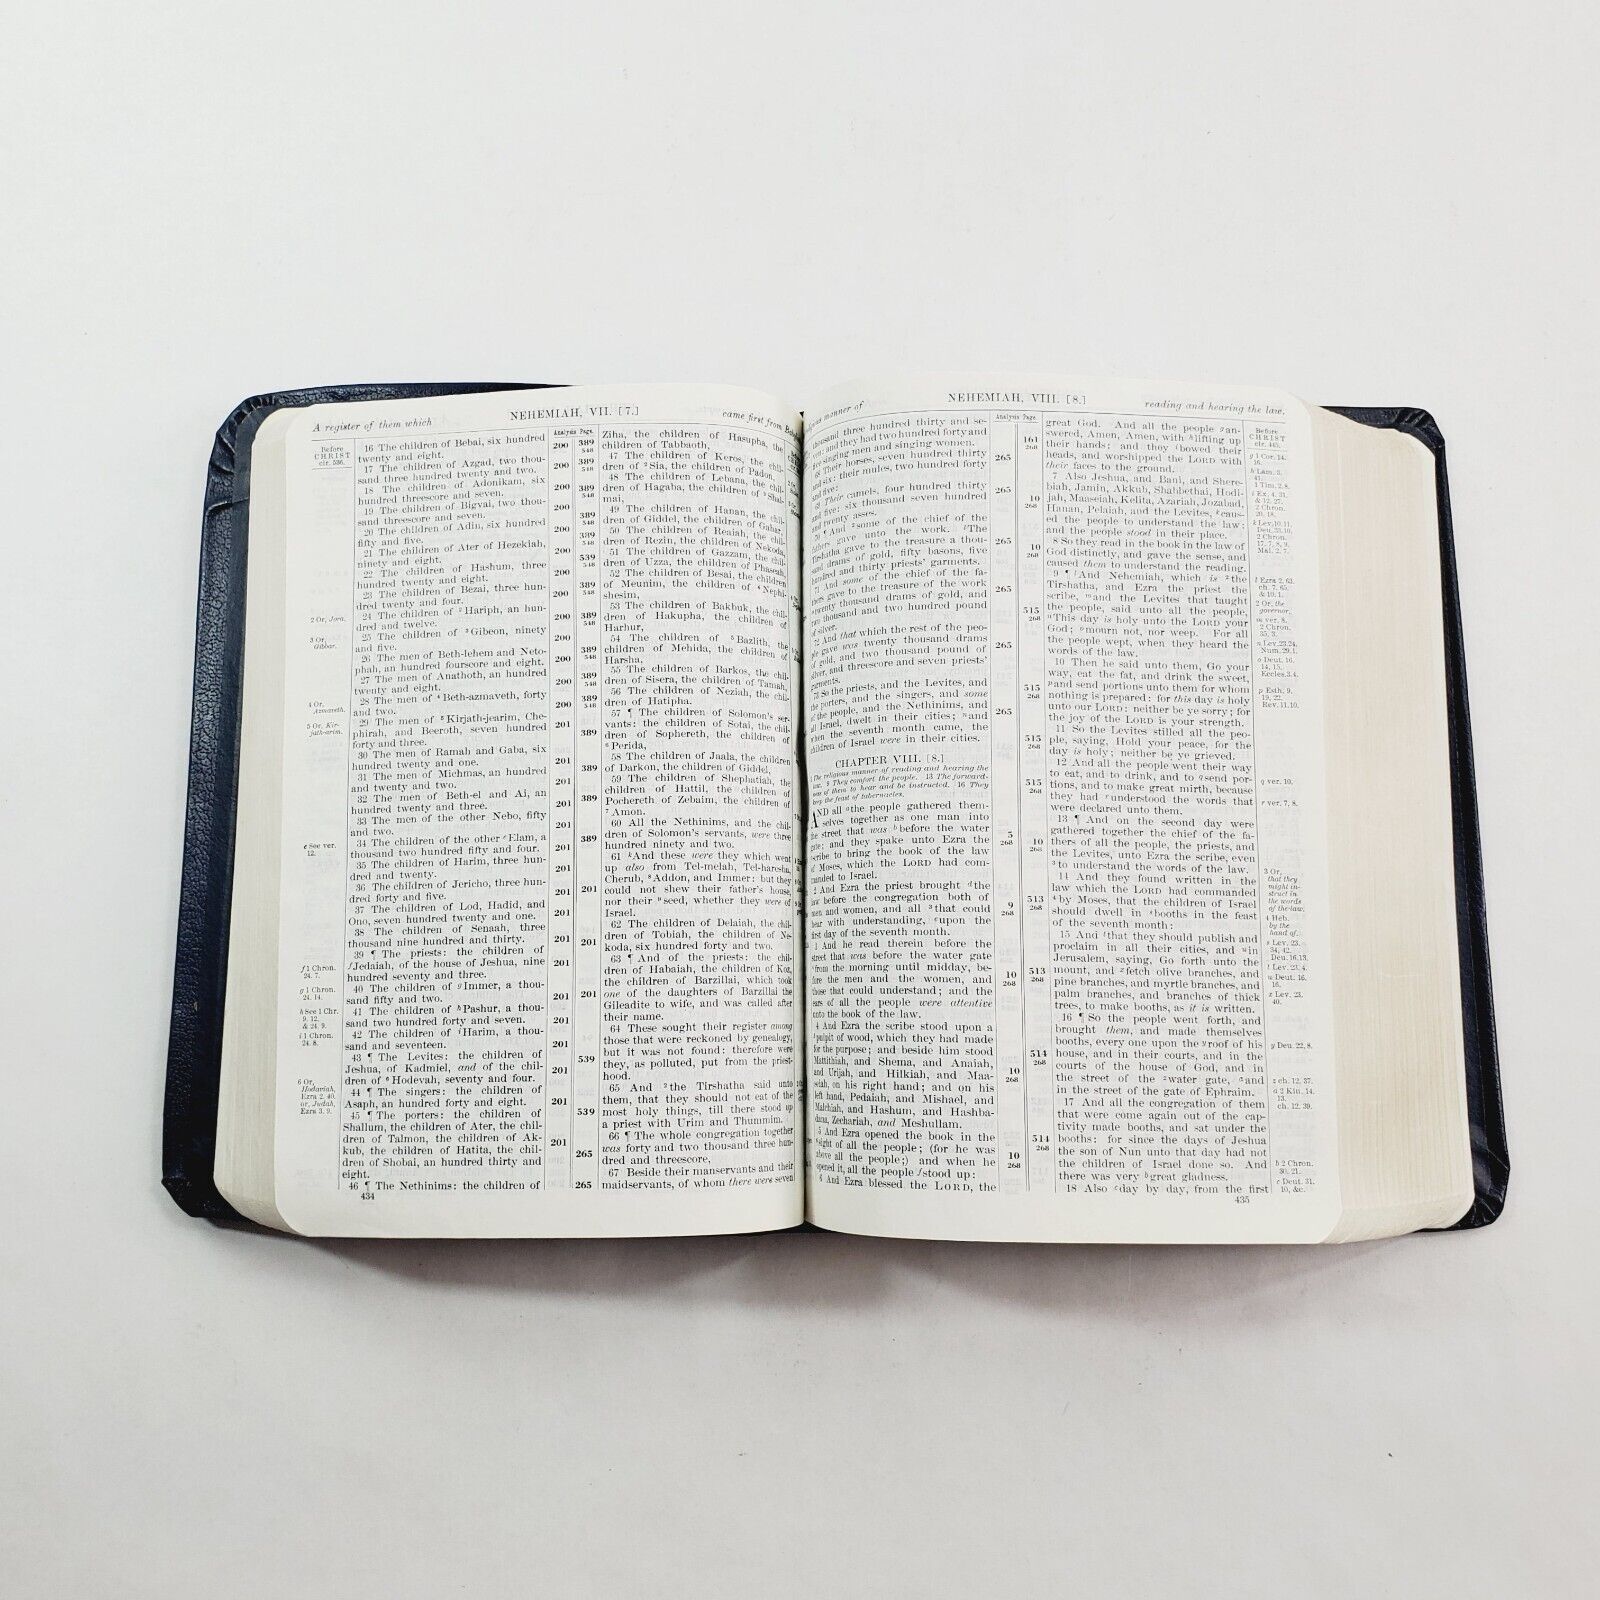 A register of them which
NEHEMIAH, VII. [7.]
came first from
Before
CHRIST
cir. 536.
2 Or, Jora.
3 Or,
Gibbar.
4 Or,
Azmaveth.
5 Or, Kir-
jath-arim.
e See ver.
12.
f 1 Chron.
24. 7.
g 1 Chron.
24. 14.
h See 1 Chr.
9. 12,
& 24. 9.
i 1 Chron.
24. 8.
6 Or,
Hodaviah,
Ezra 2. 40.
or, Judah,
Ezra 3. 9.
16 The children of Bebai, six hundred
twenty and eight.
17 The children of Azgad, two thou-
sand three hundred twenty and two.
18 The children of Adonikam, six
hundred threescore and seven.
19 The children of Bigvai, two thou-
sand threescore and seven.
20 The children of Adin, six hundred
fifty and five.
21 The children of Ater of Hezekiah,
ninety and eight.
22 The children of Hashum, three
hundred twenty and eight.
23 The children of Bezai, three hun-
dred twenty and four.
24 The children of 2 Hariph, an hun-
dred and twelve.
25 The children of 3 Gibeon, ninety
and five.
26 The men of Beth-lehem and Neto-
phah, an hundred fourscore and eight.
27 The men of Anathoth, an hundred
twenty and eight.
28 The men of 4 Beth-azmaveth, forty
and two.
29 The men of 5 Kirjath-jearim, Che-
phirah, and Beeroth, seven hundred
forty and three.
30 The men of Ramah and Gaba, six
hundred twenty and one.
31 The men of Michmas, an hundred
and twenty and two.
32 The men of Beth-el and Ai, an
hundred twenty and three.
33 The men of the other Nebo, fifty
and two.
34 The children of the other e Elam, a
thousand two hundred fifty and four.
35 The children of Harim, three hun-
dred and twenty.
36 The children of Jericho, three hun-
dred forty and five.
37 The children of Lod, Hadid, and
Ono, seven hundred twenty and one.
38 The children of Senaah, three
thousand nine hundred and thirty.
39 ¶ The priests: the children of
f Jedaiah, of the house of Jeshua, nine
hundred seventy and three.
40 The children of g Immer, a thou-
sand fifty and two.
41 The children of h Pashur, a thou-
sand two hundred forty and seven.
42 The children of i Harim, a thou-
sand and seventeen.
43 ¶ The Levites: the children of
Jeshua, of Kadmiel, and of the chil-
dren of 6 Hodevah, seventy and four.
44 ¶ The singers: the children of
Asaph, an hundred forty and eight.
45 ¶ The porters: the children of
Shallum, the children of Ater, the chil-
dren of Talmon, the children of Ak-
kub, the children of Hatita, the chil-
dren of Shobai, an hundred thirty and
eight.
46 ¶ The Nethinims: the children of
434
Analysis Page.
200 389
548
Ziha, the children of Hasupha, the
children of Tabbaoth,
47 The children of Keros, the chil-
dren of 2 Sia, the children of Padon,
48 The children of Lebana, the chil-
dren of Hagaba, the children of Shal-
mai,
49 The children of Hanan, the chil-
dren of Giddel, the children of Gahar,
50 The children of Reaiah, the chil-
dren of Rezin, the children of Nekoda,
51 The children of Gazzam, the chil-
dren of Uzza, the children of Phaseah,
52 The children of Besai, the children
of Meunim, the children of Nephi-
shesim,
53 The children of Bakbuk, the chil-
dren of Hakupha, the children of
Harhur,
54 The children of 5 Bazlith, the
children of Mehida, the children of
Harsha,
55 The children of Barkos, the chil-
dren of Sisera, the children of Tamah,
56 The children of Neziah, the chil-
dren of Hatipha.
57 ¶ The children of Solomon's ser-
vants: the children of Sotai, the chil-
dren of Sophereth, the children of
6 Perida,
58 The children of Jaala, the children
of Darkon, the children of Giddel,
59 The children of Shephatiah, the
children of Hattil, the children of
Pochereth of Zebaim, the children of
7 Amon.
60 All the Nethinims, and the chil-
dren of Solomon's servants, were three
hundred ninety and two.
61 k And these were they which went
up also from Tel-melah, Tel-haresha,
Cherub, 8 Addon, and Immer: but they
could not shew their father's house,
nor their 9 seed, whether they were of
Israel.
62 The children of Delaiah, the chil-
dren of Tobiah, the children of Ne-
koda, six hundred forty and two.
63 ¶ And of the priests: the chil-
dren of Habaiah, the children of Koz,
the children of Barzillai, which took
one of the daughters of Barzillai the
Gileadite to wife, and was called after
their name.
64 These sought their register among
those that were reckoned by genealogy,
but it was not found: therefore were
they, as polluted, put from the priest-
hood.
65 And 2 the Tirshatha said unto
them, that they should not eat of the
most holy things, till there stood up
a priest with Urim and Thummim.
66 ¶ The whole congregation together
was forty and two thousand three hun-
dred and threescore,
67 Beside their manservants and their
maidservants, of whom there were seven
manner of
NEHEMIAH, VIII. [8.]
reading and hearing the law.
thousand three hundred thirty and se-
ven: and they had two hundred forty and
five singing men and singing women.
68 Their horses, seven hundred thirty
and six: their mules, two hundred forty
and five:
69 Their camels, four hundred thirty
and five: six thousand seven hundred
and twenty asses.
70 ¶ And some of the chief of the
fathers gave unto the work. The
Tirshatha gave to the treasure a thou-
sand drams of gold, fifty basons, five
hundred and thirty priests' garments.
71 And some of the chief of the fa-
thers gave to the treasure of the work
twenty thousand drams of gold, and
two thousand and two hundred pound
of silver.
72 And that which the rest of the peo-
ple gave was twenty thousand drams
of gold, and two thousand pound of
silver, and threescore and seven priests'
garments.
73 So the priests, and the Levites, and
the porters, and the singers, and some
of the people, and the Nethinims, and
all Israel, dwelt in their cities; and
when the seventh month came, the
children of Israel were in their cities.
CHAPTER VIII. [8.]
1 The religious manner of reading and hearing the
law. 9 They comfort the people. 13 The forward-
ness of them to hear and be instructed. 16 They
keep the feast of tabernacles.
AND all a the people gathered them-
selves together as one man into
the street that was b before the water
gate; and they spake unto Ezra the
scribe to bring the book of the law
of Moses, which the LORD had com-
manded to Israel.
2 And Ezra the priest brought d the
law before the congregation both of
men and women, and all 3 that could
hear with understanding, e upon the
first day of the seventh month.
3 And he read therein before the
street that was before the water gate
from the morning until midday, be-
fore the men and the women, and
those that could understand; and the
ears of all the people were attentive
unto the book of the law.
4 And Ezra the scribe stood upon a
pulpit of wood, which they had made
for the purpose; and beside him stood
Mattithiah, and Shema, and Anaiah,
and Urijah, and Hilkiah, and Maa-
seiah, on his right hand; and on his
left hand, Pedaiah, and Mishael, and
Malchiah, and Hashum, and Hashba-
dana, Zechariah, and Meshullam.
5 And Ezra opened the book in the
sight of all the people; (for he was
above all the people;) and when he
opened it, all the people f stood up:
6 And Ezra blessed the LORD, the
Analysis Page.
great God. And all the people g an-
swered, Amen, Amen, with h lifting up
their hands: and they i bowed their
heads, and worshipped the LORD with
their faces to the ground.
7 Also Jeshua, and Bani, and Shere-
biah, Jamin, Akkub, Shabbethai, Hodi-
jah, Maaseiah, Kelita, Azariah, Jozabad,
Hanan, Pelaiah, and the Levites, k caus-
ed the people to understand the law:
and the people stood in their place.
8 So they read in the book in the law of
God distinctly, and gave the sense, and
caused them to understand the reading.
9 ¶ l And Nehemiah, which is 2 the
Tirshatha, and Ezra the priest the
scribe, m and the Levites that taught
the people, said unto all the people,
n This day is holy unto the LORD your
God; o mourn not, nor weep. For all
the people wept, when they heard the
words of the law.
10 Then he said unto them, Go your
way, eat the fat, and drink the sweet,
p and send portions unto them for whom
nothing is prepared: for this day is holy
unto our LORD: neither be ye sorry; for
the joy of the LORD is your strength.
11 So the Levites stilled all the peo-
ple, saying, Hold your peace, for the
day is holy; neither be ye grieved.
12 And all the people went their way
to eat, and to drink, and to q send por-
tions, and to make great mirth, because
they had r understood the words that
were declared unto them.
13 ¶ And on the second day were
gathered together the chief of the fa-
thers of all the people, the priests, and
the Levites, unto Ezra the scribe, even
3 to understand the words of the law.
14 And they found written in the
law which the LORD had commanded
4 by Moses, that the children of Israel
should dwell in s booths in the feast
of the seventh month:
15 And t that they should publish and
proclaim in all their cities, and u in
Jerusalem, saying, Go forth unto the
mount, and x fetch olive branches, and
pine branches, and myrtle branches, and
palm branches, and branches of thick
trees, to make booths, as it is written.
16 ¶ So the people went forth, and
brought them, and made themselves
booths, every one upon the y roof of his
house, and in their courts, and in the
courts of the house of God, and in
the street of the z water gate, a and
in the street of the gate of Ephraim.
17 And all the congregation of them
that were come again out of the cap-
tivity made booths, and sat under the
booths: for since the days of Jeshua
the son of Nun unto that day had not
the children of Israel done so. And
there was very b great gladness.
18 Also c day by day, from the first
435
Before
CHRIST
cir. 445.
g 1 Cor. 14.
16.
h Lam. 3.
41.
1 Tim. 2. 8.
i Ex. 4. 31,
& 12. 27.
2 Chron.
20. 18.
k Lev. 10. 11.
Deu. 33. 10.
2 Chron.
17. 7, 8, 9.
Mal. 2. 7.
l Ezra 2. 63.
ch. 7. 65.
& 10. 1.
2 Or, the
governor.
m ver. 8.
2 Chron.
35. 3.
n Lev. 23. 24.
Num. 29. 1.
o Deut. 16.
14, 15.
Eccles. 3. 4.
p Esth. 9.
19, 22.
Rev. 11. 10.
q ver. 10.
r ver. 7, 8.
3 Or,
that they
might in-
struct in
the words
of the law.
4 Heb.
by the
hand of.
s Lev. 23.
34, 42.
Deu. 16. 13.
t Lev. 23. 4.
u Deut. 16.
16.
x Lev. 23.
40.
y Deu. 22. 8.
z ch. 12. 37.
a 2 Kin. 14.
13.
ch. 12. 39.
b 2 Chron.
30. 21.
c Deut. 31.
10, &c.